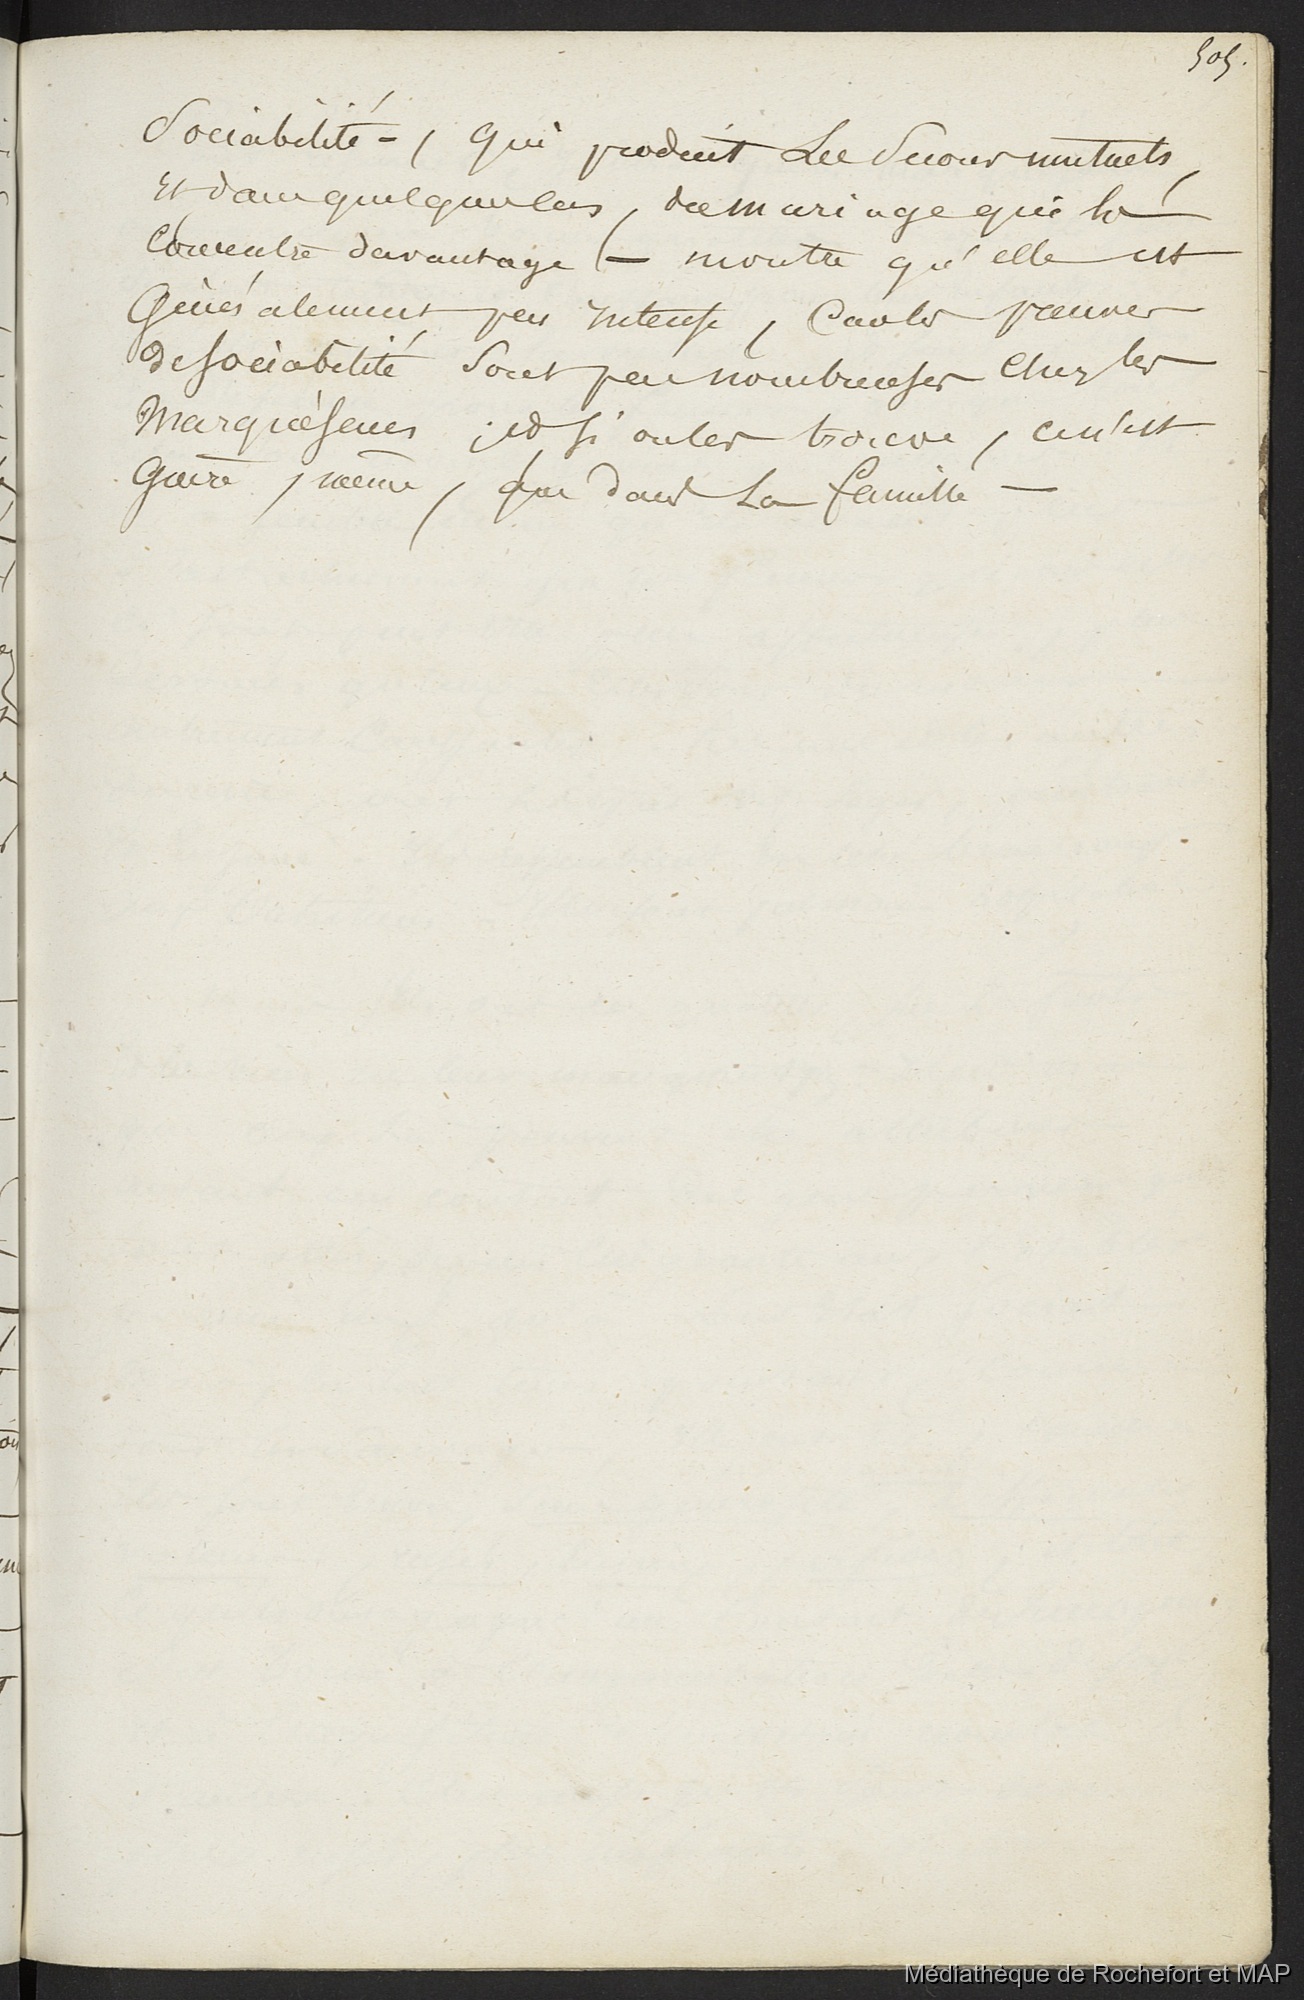 505.
Sociabilité -, qui produit les secours mutuels,
et dans quelques cas, du mariage qui la
concentre davantage - montre qu'elle est
généralement peu intense, car les preuves
de sociabilité sont peu nombreuses chez les
Marquésiens ; et si on les trouve, ce n'est
guère, même, que dans la famille -
Médiathèque de Rochefort et MAP